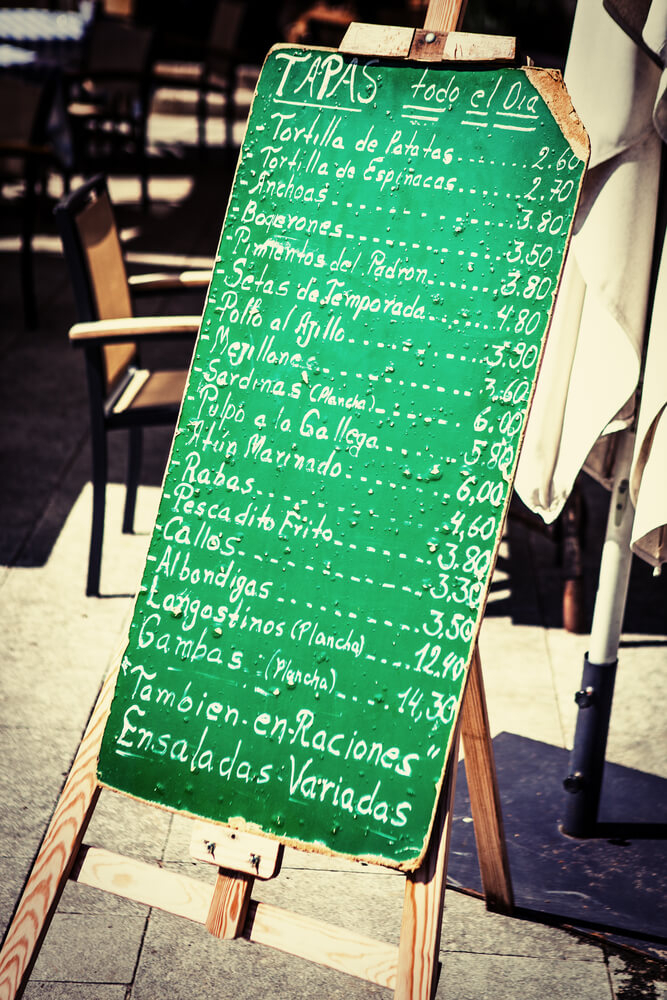 TAPAS todo el Dia
- Tortilla de Patatas........ 2.60
- Tortilla de Espinacas....... 2.70
- Anchoas............ 3.80
- Boqerones............ 3.50
- Pimientos del Padron....... 3.80
- Setas de Temporada...... 4.80
- Pollo al Ajillo............ 3.90
- Mejillones............ 3.60
- Sardinas (Plancha)........ 6.00
- Pulpo a la Gallega........ 5.80
- Atún Marinado........ 6,00
- Rabas............ 4,60
- Pescadito Frito........ 3.80
- Callos............ 3.30
- Albondigas............ 3,50
- Langostinos (Plancha)..... 12,40
- Gambas (Plancha).... 14,30
"Tambien-en-Raciones"
- Ensaladas Variadas